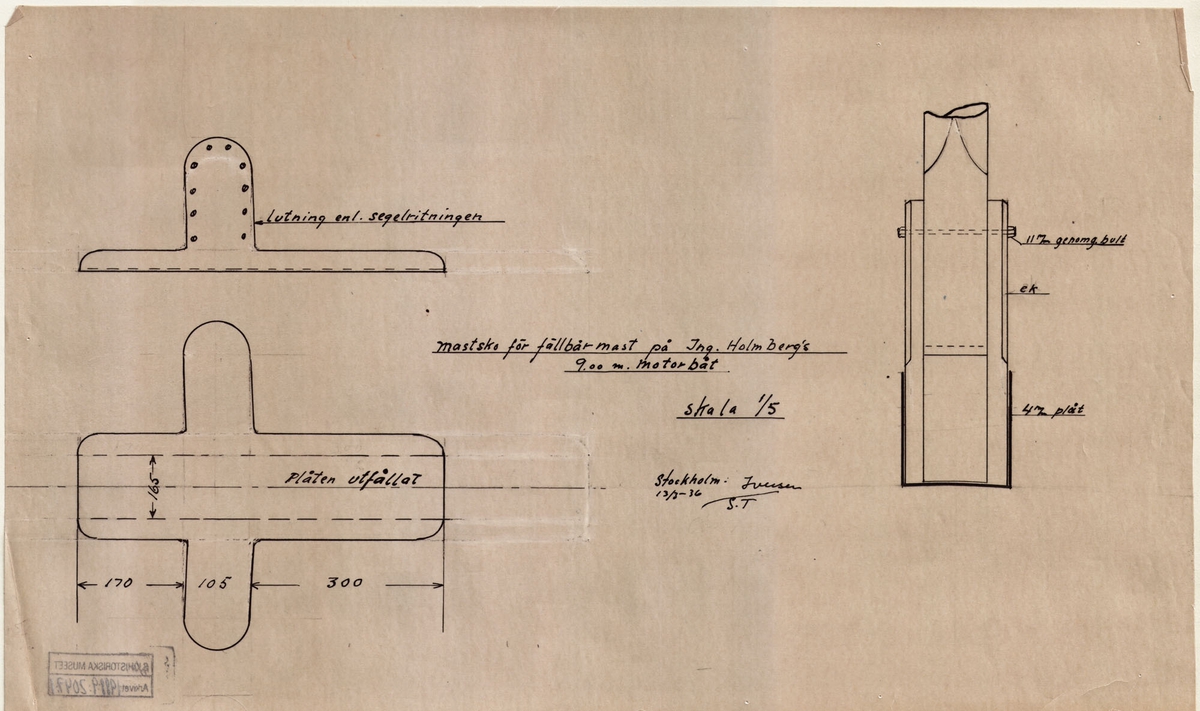 Lutning enl. segelritningen
11 m/m genomg. bult
ek
Mastsko för fällbar mast på Ing. Holmberg's
9.00 m. motorbåt
Skala 1/5
4 m/m plåt
Plåten utfållat
165
Stockholm:
13/3-36
S.T
170 105 300
SJÖHISTORISKA MUSEET
Arkivet